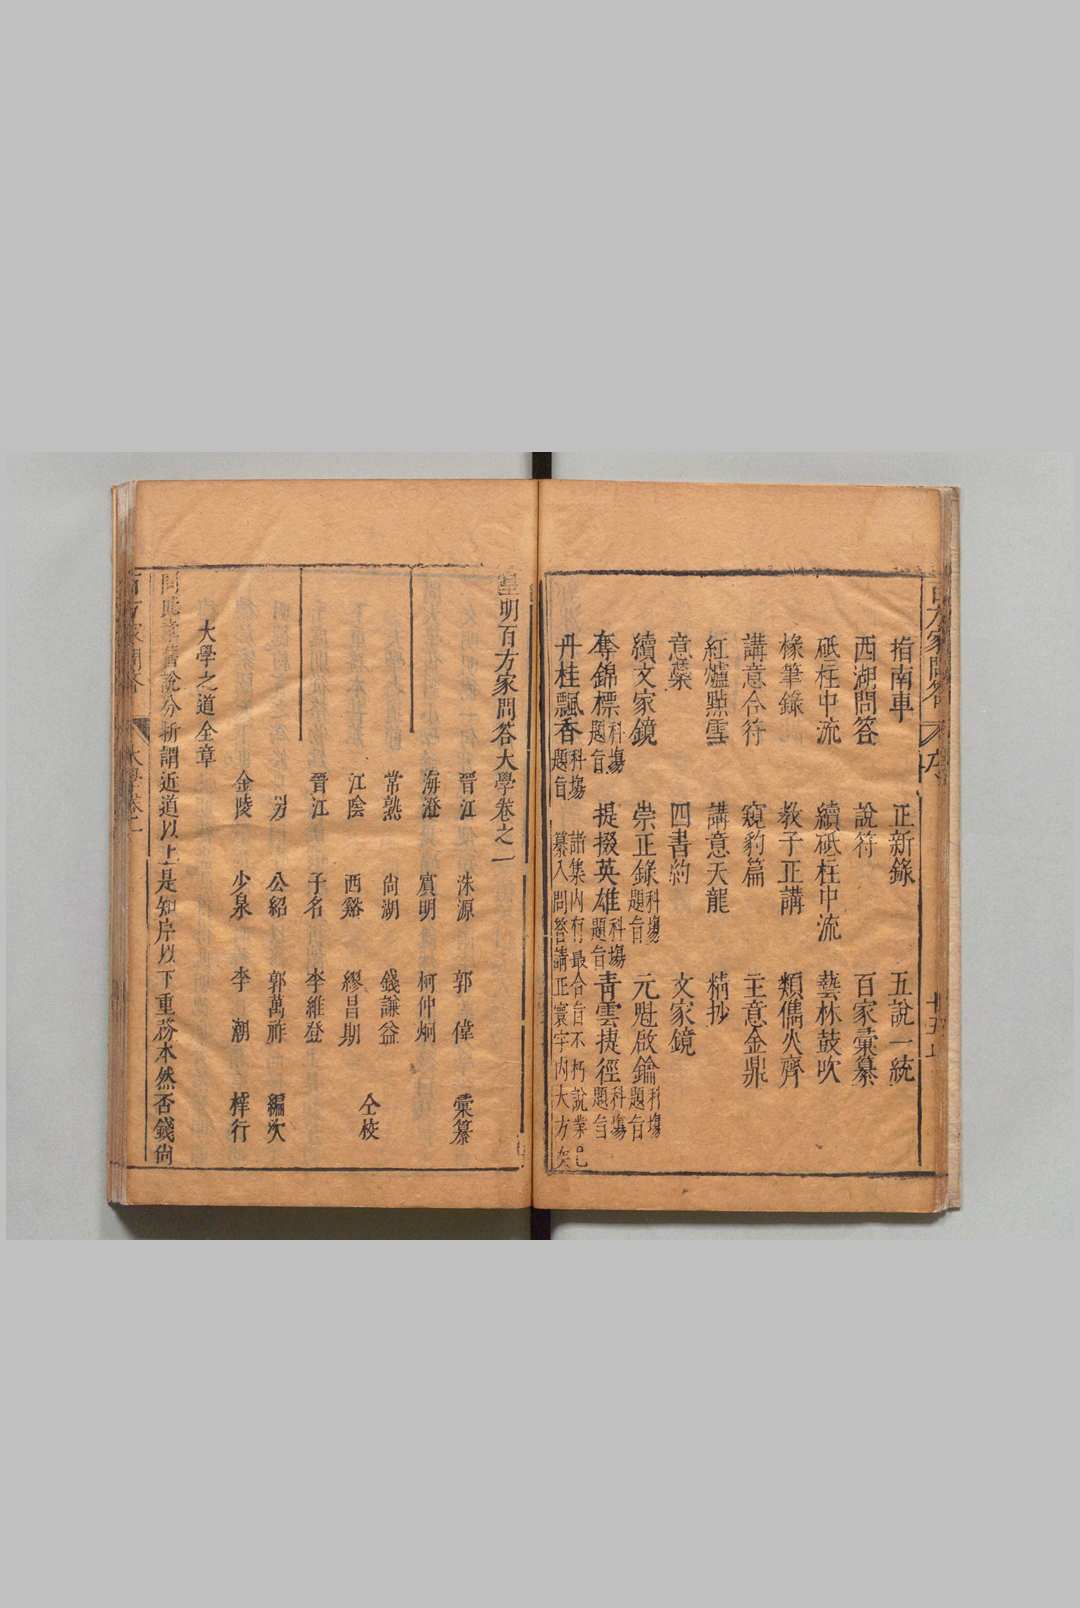 指南車 正新錄 五說一統
西湖問答 說符 百家彙纂
砥柱中流 續砥柱中流 藝林鼓吹
椽筆錄 教子正講 類儁火齊
講意合符 窺豹篇 主意金鼎
紅爐點雪 講意天龍 精抄
意藥 四書約 文家鏡
續文家鏡 崇正錄科場題旨 元魁啟鑰科場題旨
奪錦標科場題旨 提掇英雄科場題旨 青雲捷徑科場題旨
丹桂飄香科場題旨 諸集內有最合旨不朽說業已
纂入問答請正寰宇內大方矣
皇明百方家問答大學卷之一
晉江 洙源 郭偉 彙纂
海澄 賓明 柯仲炯
常熟 尚湖 錢謙益
江陰 西谿 繆昌期 仝校
晉江 子名 李維登
男 公紹 郭萬祚 編次
金陵 少泉 李潮 梓行
大學之道全章
問此章舊說分斬謂近道以上是知序以下重務本然否錢尚